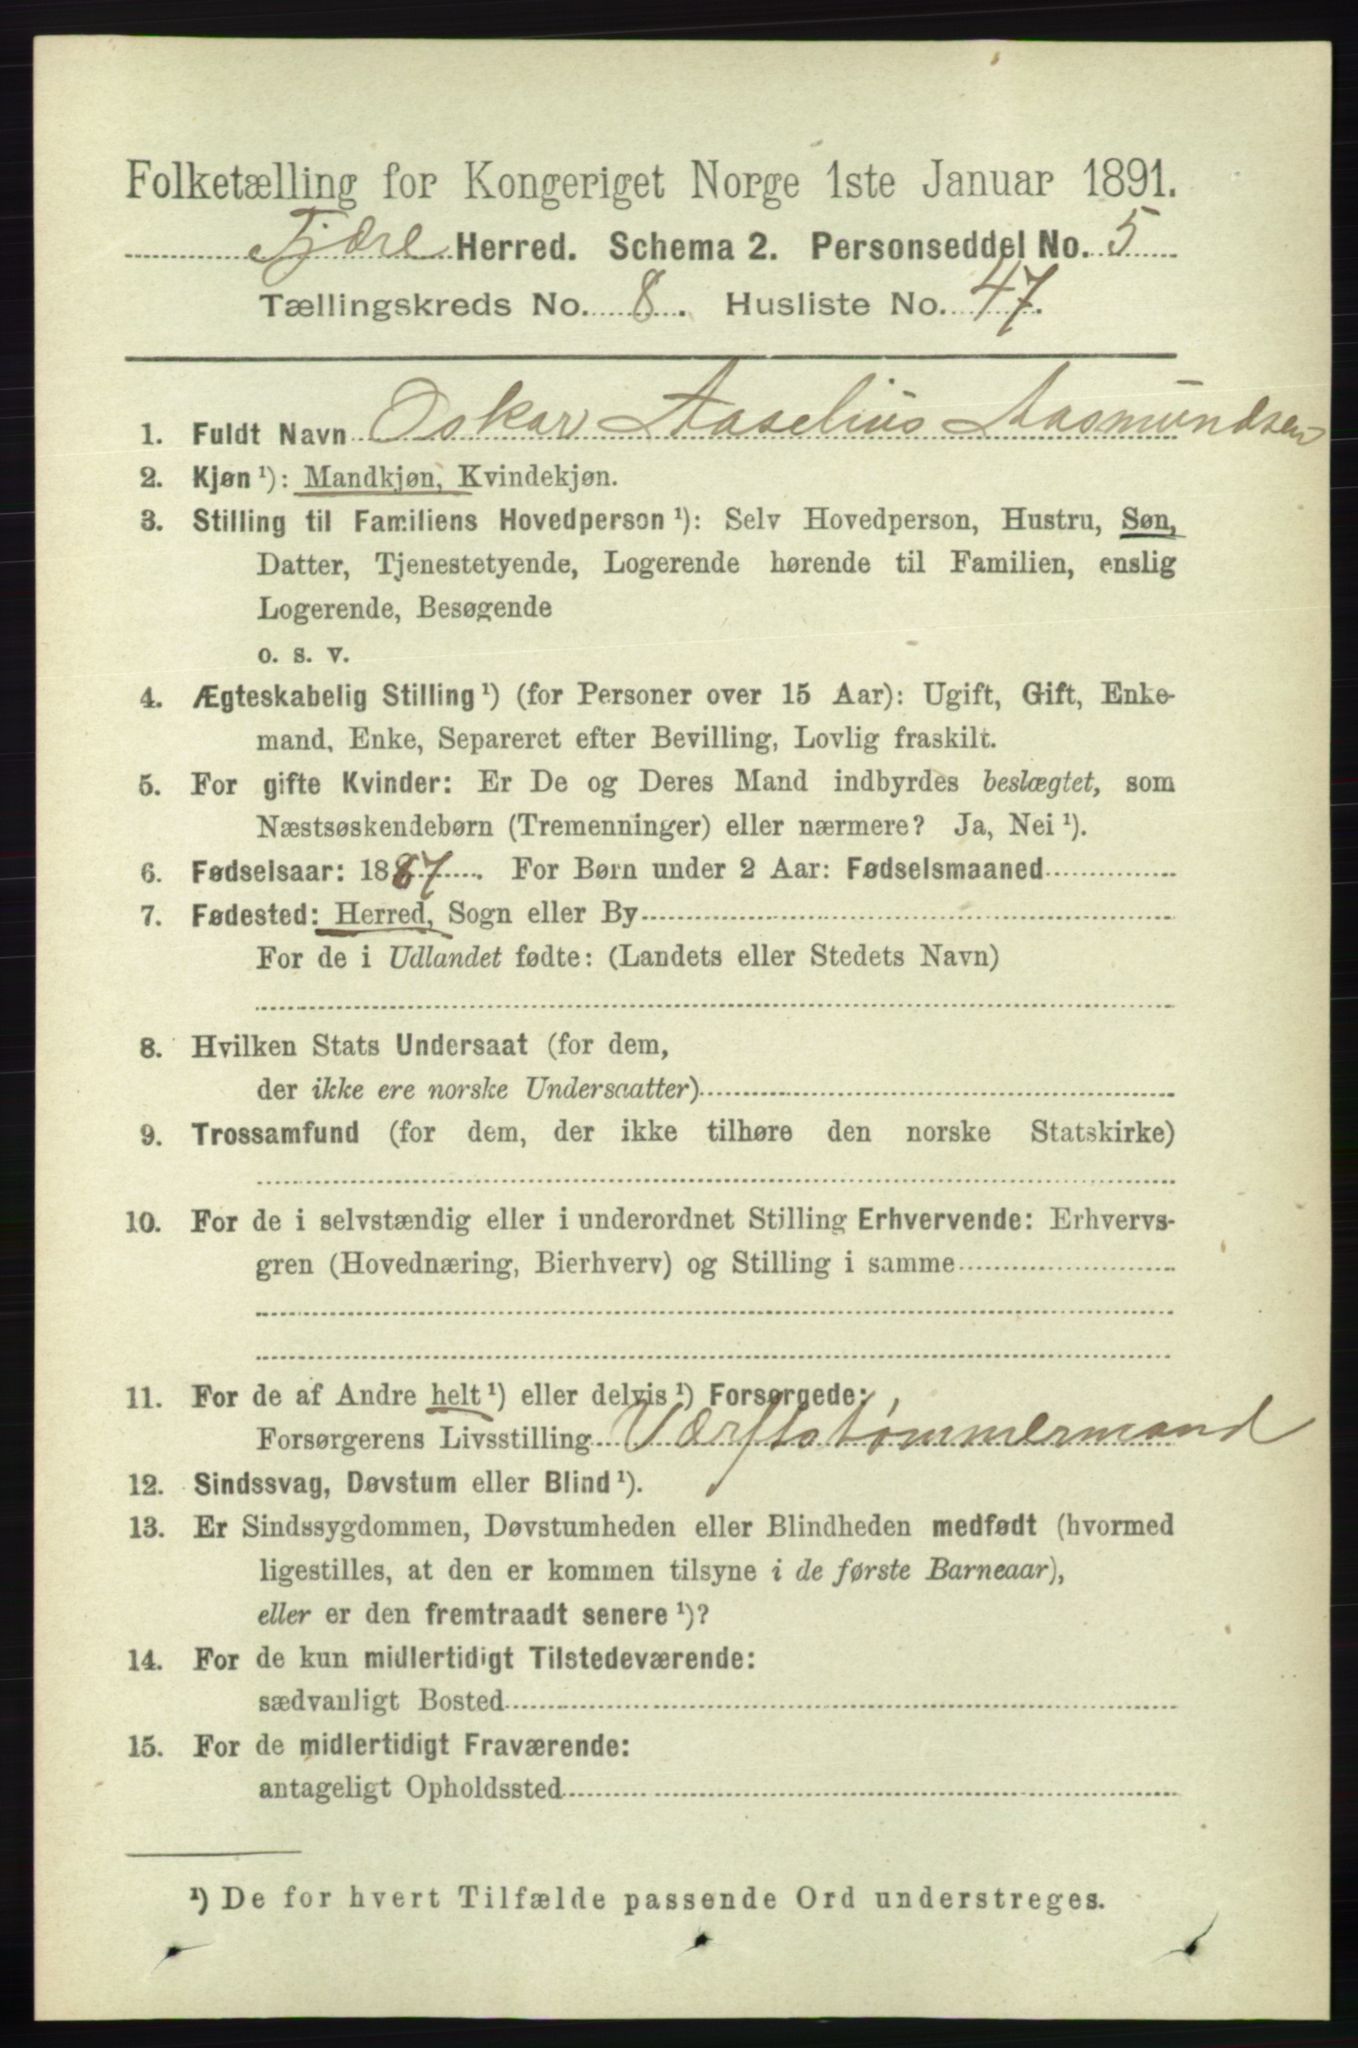 Folketælling for Kongeriget Norge 1ste Januar 1891.
Fjære Herred. Schema 2. Personseddel No. 5
Tællingskreds No. 8. Husliste No. 47.
1. Fuldt Navn Oskar Aaselius Aasmundsen
2. Kjøn ¹): Mandkjøn, Kvindekjøn.
3. Stilling til Familiens Hovedperson ¹): Selv Hovedperson, Hustru, Søn,
Datter, Tjenestetyende, Logerende hørende til Familien, enslig
Logerende, Besøgende
o. s. v.
4. Ægteskabelig Stilling ¹) (for Personer over 15 Aar): Ugift, Gift, Enke-
mand, Enke, Separeret efter Bevilling, Lovlig fraskilt.
5. For gifte Kvinder: Er De og Deres Mand indbyrdes beslægtet, som
Næstsøskendebørn (Tremenninger) eller nærmere? Ja, Nei ¹).
6. Fødselsaar: 1887. For Børn under 2 Aar: Fødselsmaaned
7. Fødested: Herred, Sogn eller By
For de i Udlandet fødte: (Landets eller Stedets Navn)
8. Hvilken Stats Undersaat (for dem,
der ikke ere norske Undersaatter)
9. Trossamfund (for dem, der ikke tilhøre den norske Statskirke)
10. For de i selvstændig eller i underordnet Stilling Erhvervende: Erhvervs-
gren (Hovednæring, Bierhverv) og Stilling i samme
11. For de af Andre helt ¹) eller delvis ¹) Forsørgede:
Forsørgerens Livsstilling Værftstømmermand
12. Sindssvag, Døvstum eller Blind ¹).
13. Er Sindssygdommen, Døvstumheden eller Blindheden medfødt (hvormed
ligestilles, at den er kommen tilsyne i de første Barneaar),
eller er den fremtraadt senere ¹)?
14. For de kun midlertidigt Tilstedeværende:
sædvanligt Bosted
15. For de midlertidigt Fraværende:
antageligt Opholdssted
¹) De for hvert Tilfælde passende Ord understreges.